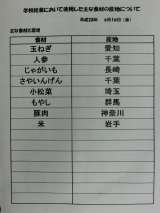 学校給食において使用した主な食材の産地について
主な食材と産地
食材 産地
玉ねぎ 愛知
人参 千葉
じゃがいも 長崎
さやいんげん 千葉
小松菜 埼玉
もやし 群馬
豚肉 神奈川
米 岩手